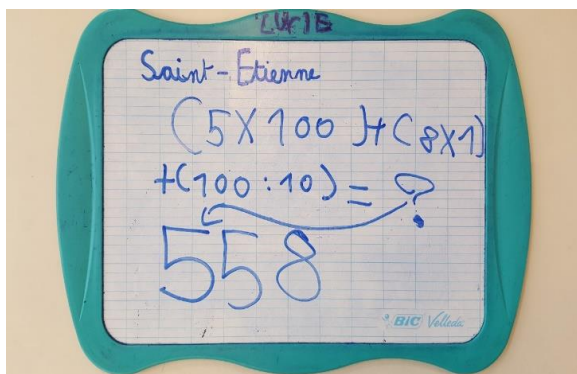 LUCIE
Saint-Etienne
(5X100)+(8X1)
+(100:10)=?
558
BIC Velleda